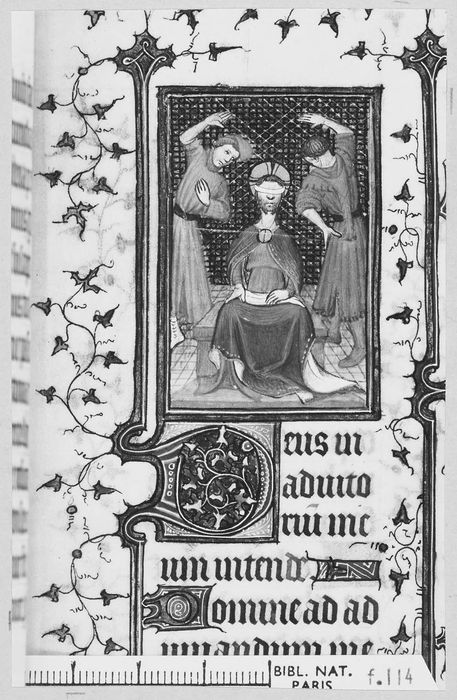 Deus in
adiuto
riū me
um intende
Domine ad ad
iuuandum me
BIBL. NAT.
PARIS
f. 114